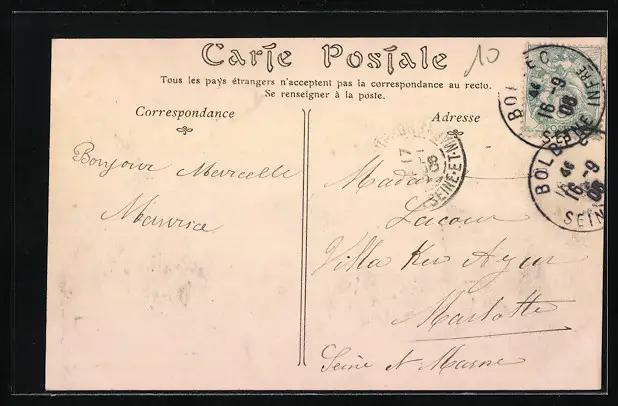 Carte Postale
10
Tous les pays étrangers n'acceptent pas la correspondance au recto.
Se renseigner à la poste.
Correspondance
Adresse
Bonjour Marcelle
Maurice
Madame
Lacour
Villa Ker
Marlotte
Seine et Marne
BOLBEC
16 -9
08
BOLBEC
16 -9
08
SEINE
17
08
SEINE-ET-M